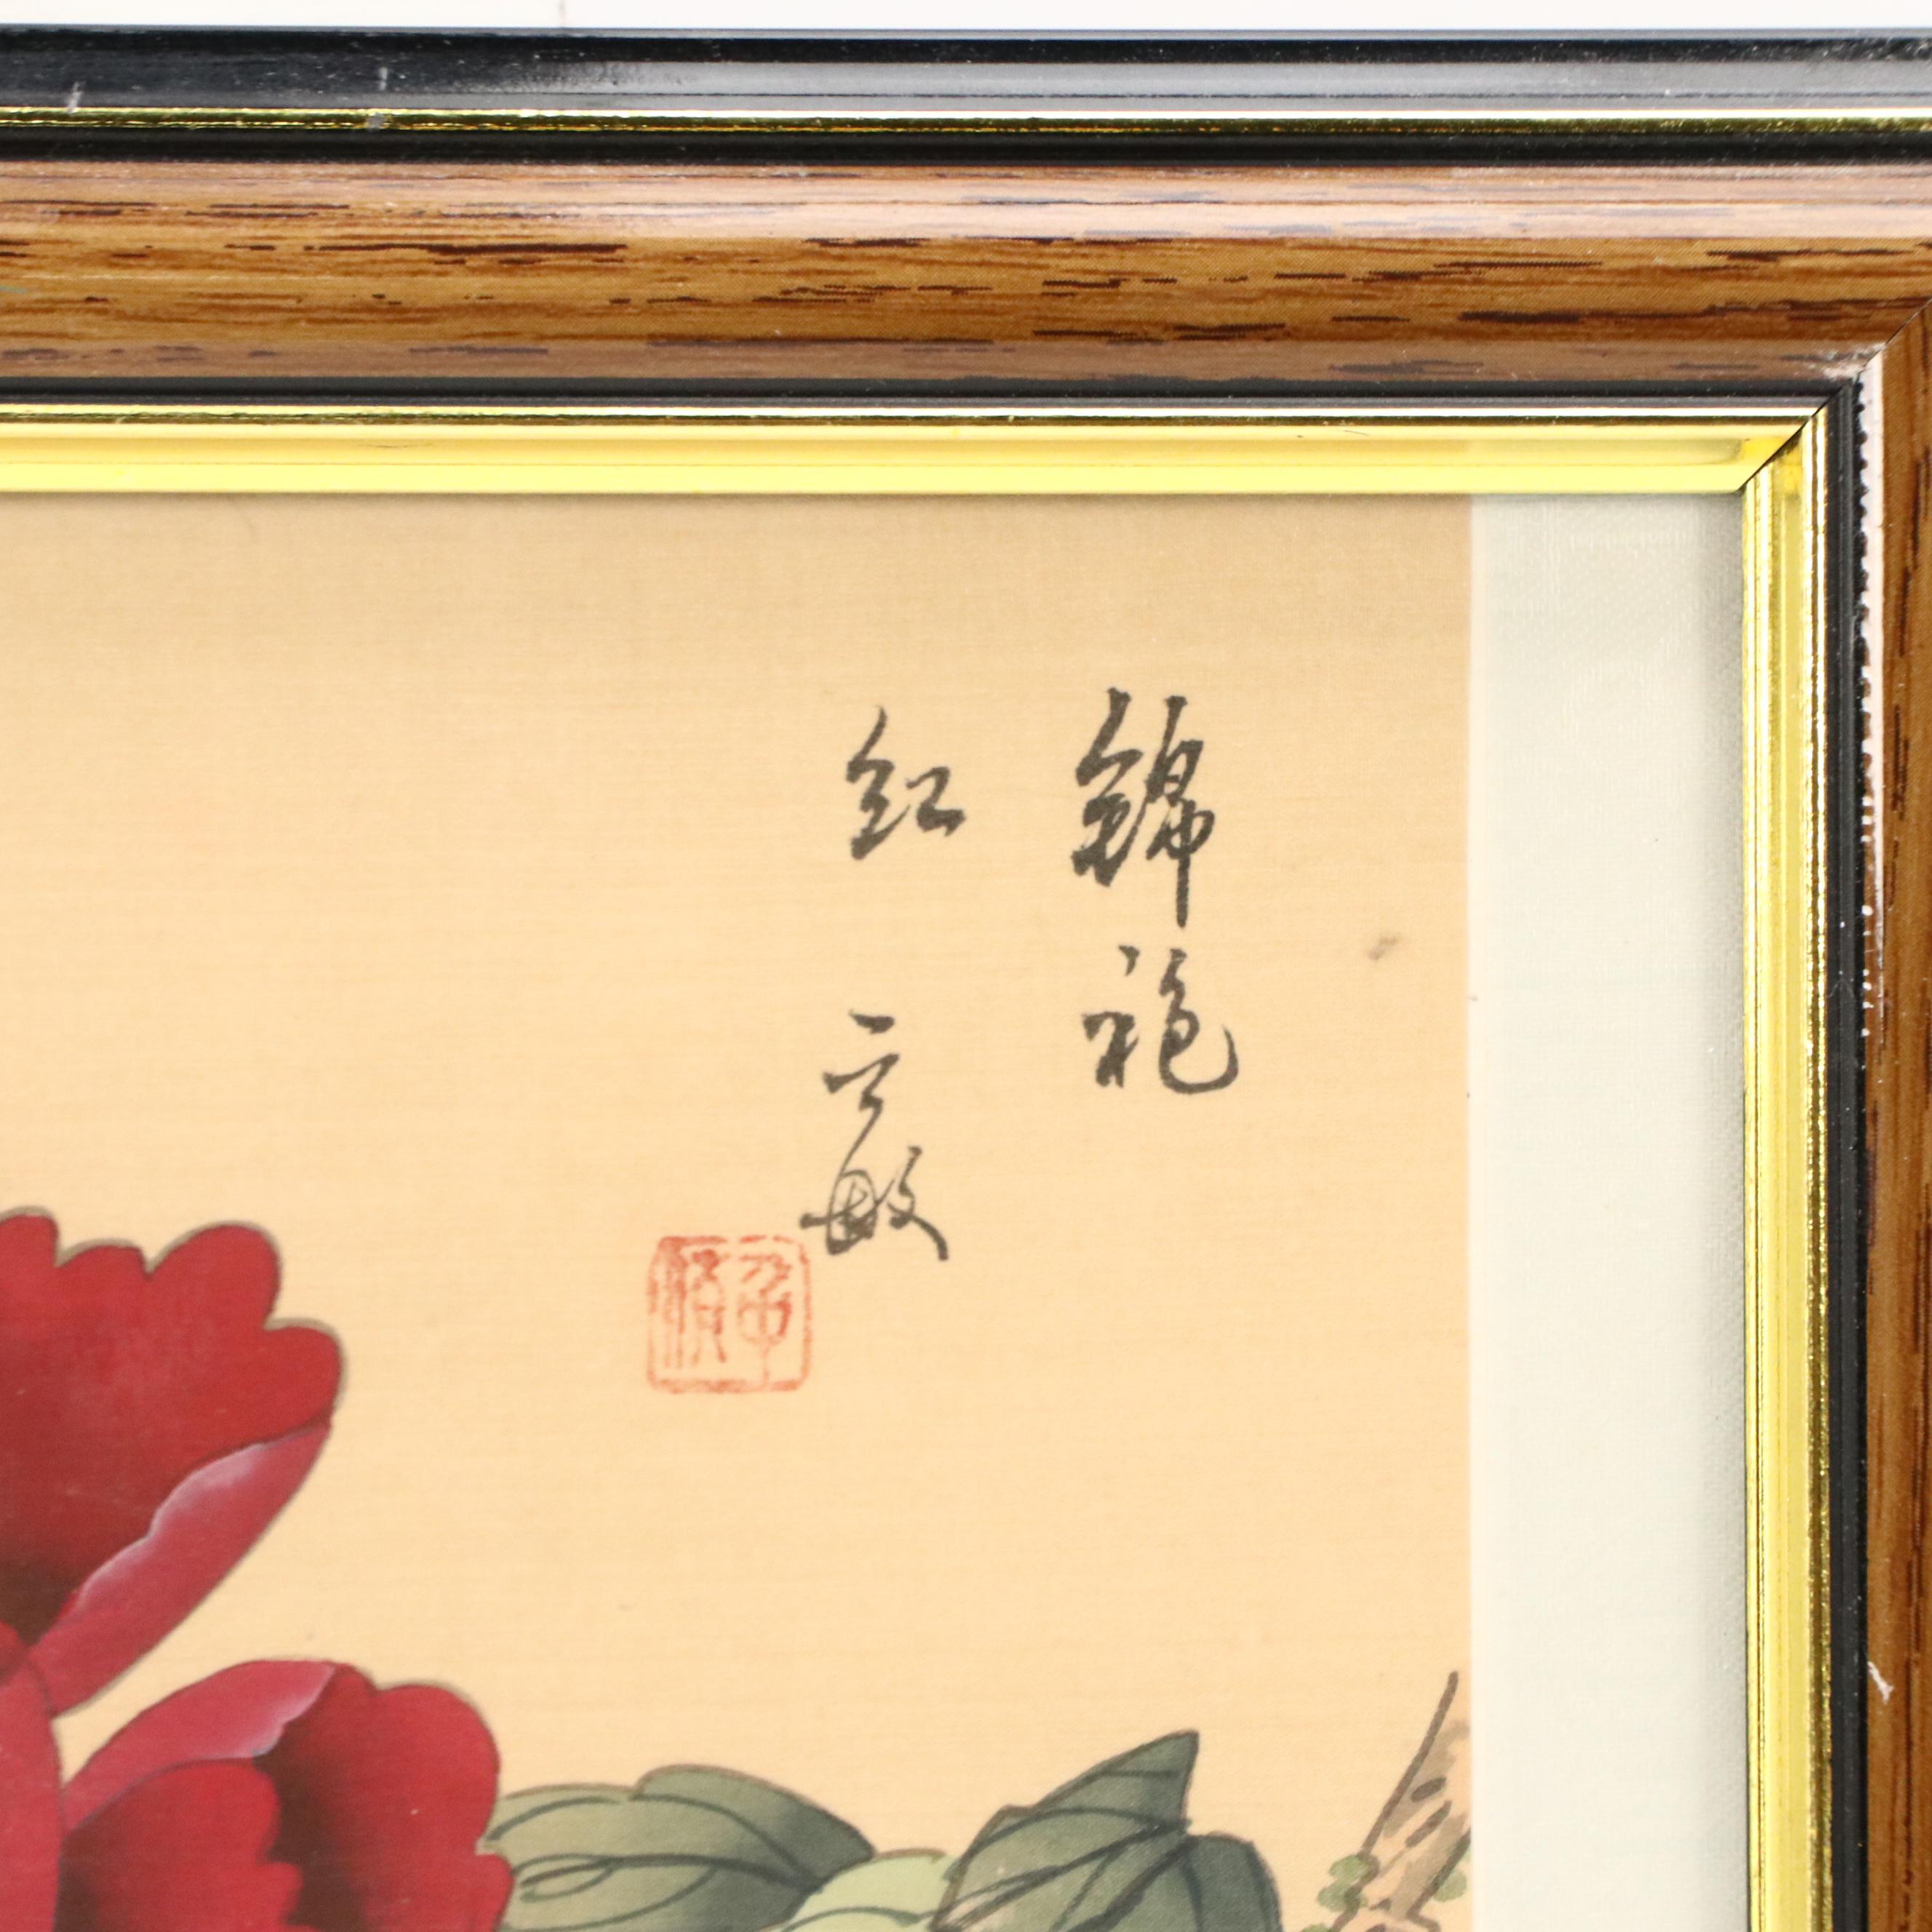 錦袍
紅 雲敏